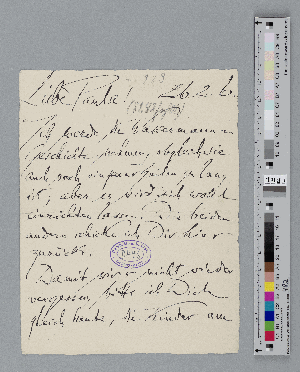 Liebe Paula! 26.2.6.
Ich werde die Wassermann
Geschichte nehmen, obgleich sie
auch noch ein paar Zeilen zu lang
ist, aber es wird sich wohl
einrichten lassen. Die beiden
andern schicke ich Dir hier
zurück.
Damit wir nicht wieder
vergessen, bitte ich Dich
gleich heute, die Kinder am